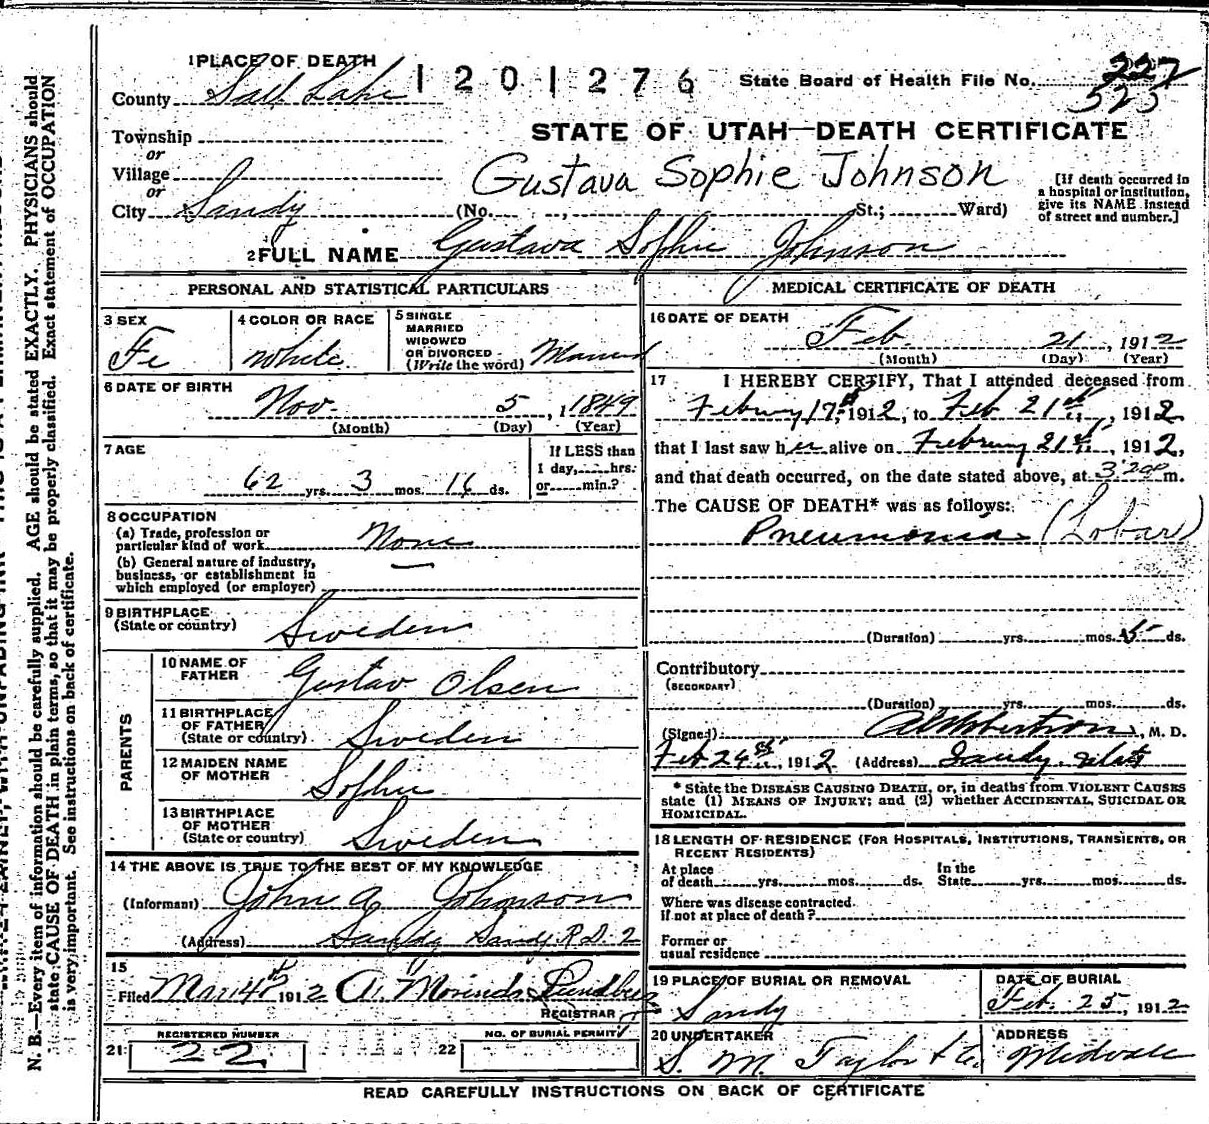 1 PLACE OF DEATH
1201276
State Board of Health File No. 227
County Salt Lake
525
STATE OF UTAH—DEATH CERTIFICATE
Township
or
Village
or
City Sandy
Gustava Sophie Johnson
(No. , St.; Ward)
[If death occurred in a hospital or institution, give its NAME instead of street and number.]
2 FULL NAME Gustava Sophie Johnson
PERSONAL AND STATISTICAL PARTICULARS
3 SEX
Fe
4 COLOR OR RACE
White
5 SINGLE
MARRIED
WIDOWED
OR DIVORCED
(Write the word) Married
6 DATE OF BIRTH
Nov. 5, 1 1849
(Month) (Day) (Year)
7 AGE
62 yrs. 3 mos. 16 ds.
If LESS than
1 day, hrs.
or min.?
8 OCCUPATION
(a) Trade, profession or
particular kind of work None
(b) General nature of industry,
business, or establishment in
which employed (or employer) —
9 BIRTHPLACE
(State or country) Sweden
PARENTS
10 NAME OF
FATHER Gustav Olsen
11 BIRTHPLACE
OF FATHER
(State or country) Sweden
12 MAIDEN NAME
OF MOTHER Sophie
13 BIRTHPLACE
OF MOTHER
(State or country) Sweden
14 THE ABOVE IS TRUE TO THE BEST OF MY KNOWLEDGE
(Informant) John A Johnson
(Address) Sandy Sandy R.D. 2
15
Filed Mar 14th 1912
REGISTRAR
REGISTERED NUMBER
21 22
NO. OF BURIAL PERMIT
22
MEDICAL CERTIFICATE OF DEATH
16 DATE OF DEATH
Feb. 21, 1912
(Month) (Day) (Year)
17 I HEREBY CERTIFY, That I attended deceased from
Febury 17th, 1912, to Feb 21st, 1912
that I last saw her alive on Februry 21st, 1912,
and that death occurred, on the date stated above, at m.
The CAUSE OF DEATH* was as follows:
Pneumonia (Lobar)
(Duration) yrs. mos. 5 ds.
Contributory
(SECONDARY)
(Duration) yrs. mos. ds.
(Signed) Robertson, M. D.
Feb 24th, 1912 (Address) Sandy Utah
* State the DISEASE CAUSING DEATH, or, in deaths from VIOLENT CAUSES
state (1) MEANS OF INJURY; and (2) whether ACCIDENTAL, SUICIDAL OR
HOMICIDAL.
18 LENGTH OF RESIDENCE (FOR HOSPITALS, INSTITUTIONS, TRANSIENTS, OR
RECENT RESIDENTS)
At place
of death yrs. mos. ds.
In the
State yrs. mos. ds.
Where was disease contracted
if not at place of death?
Former or
usual residence
19 PLACE OF BURIAL OR REMOVAL
Sandy
DATE OF BURIAL
Feb. 25, 1912
20 UNDERTAKER
S. M. Taylor & Co.
ADDRESS
Midvale
READ CAREFULLY INSTRUCTIONS ON BACK OF CERTIFICATE
N. B.—Every item of information should be carefully supplied. AGE should be stated EXACTLY. PHYSICIANS should
state CAUSE OF DEATH in plain terms, so that it may be properly classified. Exact statement of OCCUPATION
is very important. See instructions on back of certificate.